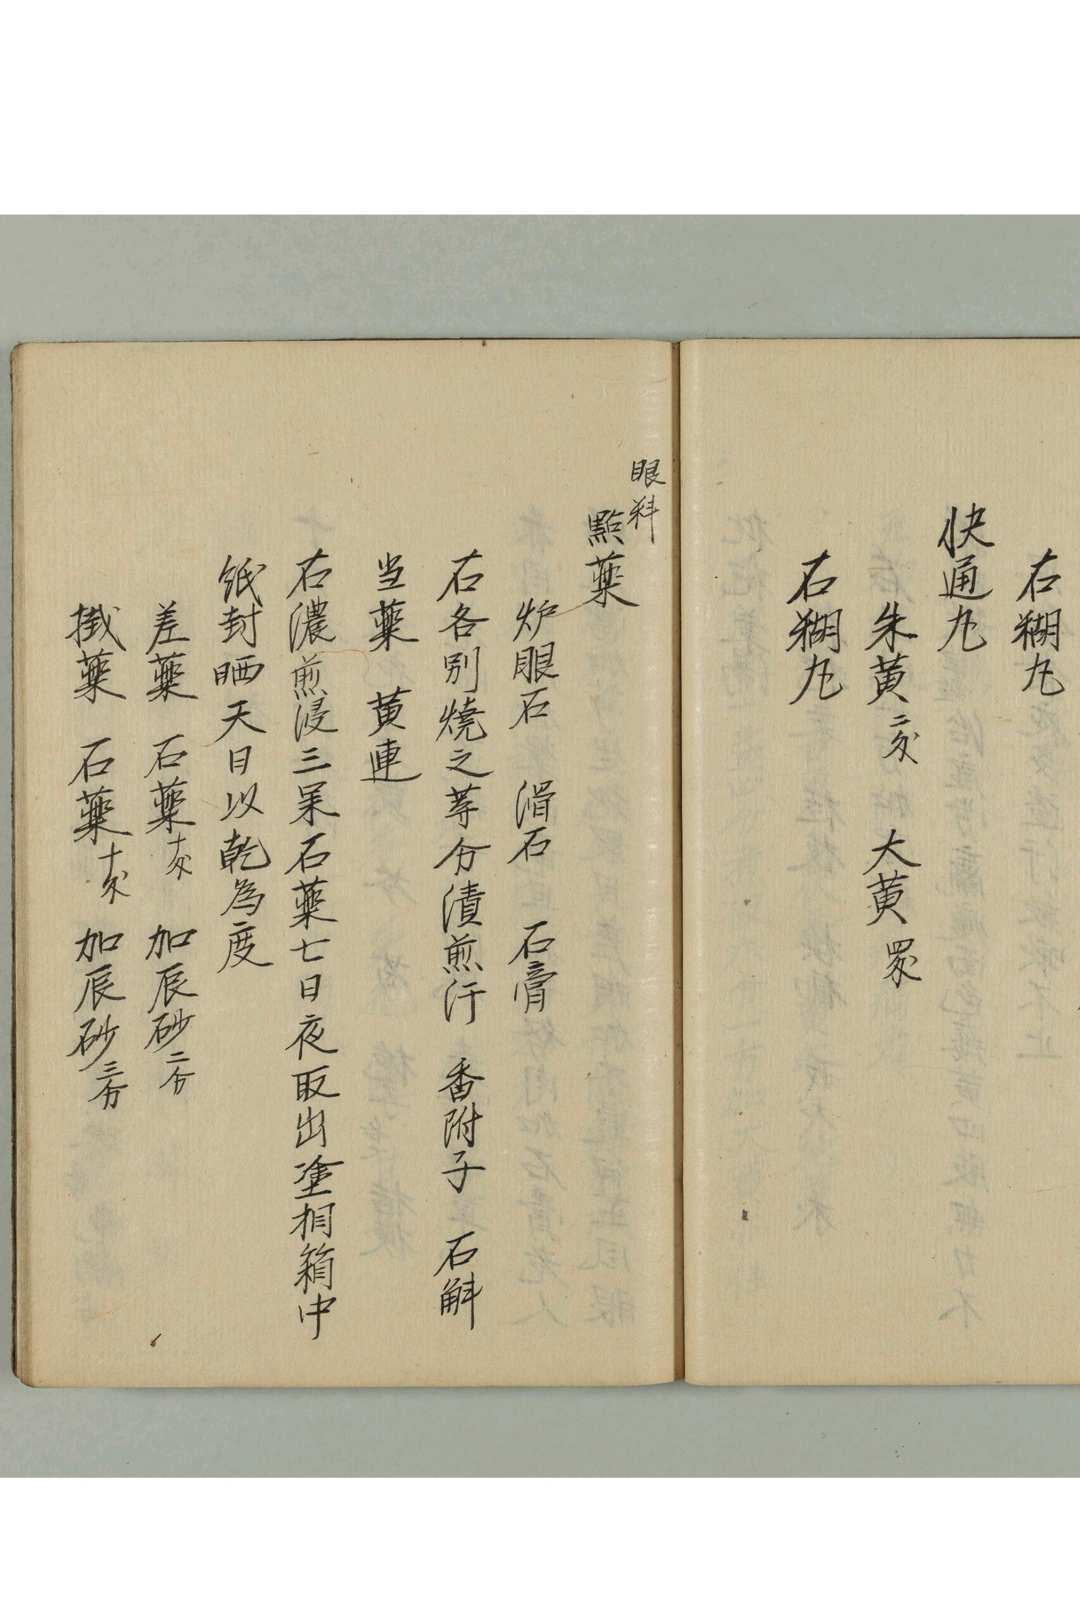 右糊丸
快通丸
朱黄 二匁 大黄 四匁
右糊丸
眼科
點薬
炉眼石 滑石 石膏
右各別焼之等分漬煎汁 香附子 石斛
当薬 黄連
右濃煎浸三味石薬七日夜取出塗相箱中
紙封晒天日以乾為度
差薬 石薬 十匁 加辰砂 二分
掛薬 石薬 十匁 加辰砂 三分